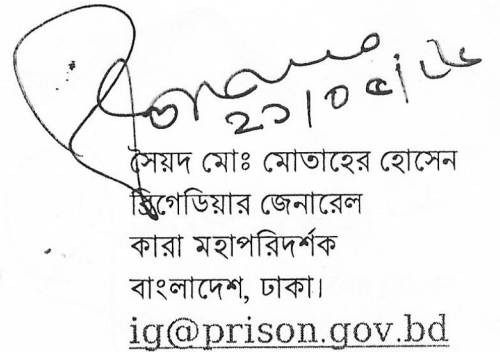 সৈয়দ মোঃ মোতাহের হোসেন
ব্রিগেডিয়ার জেনারেল
কারা মহাপরিদর্শক
বাংলাদেশ, ঢাকা।
ig@prison.gov.bd